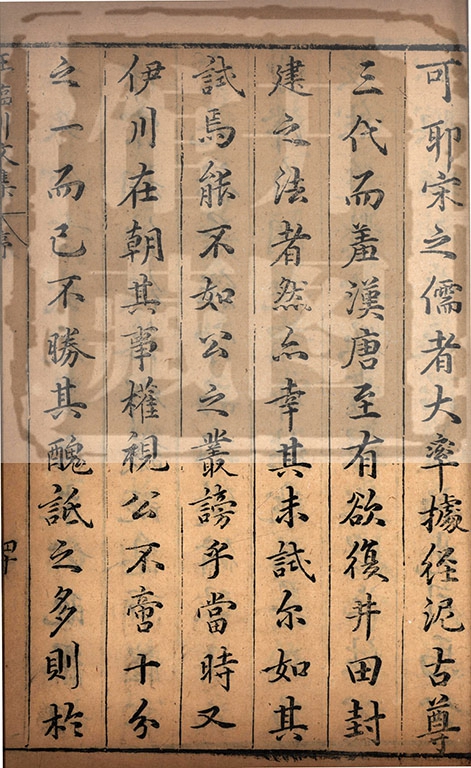 可耶宋之儒者大率據經泥古尊
三代而羞漢唐至有欲復井田封
建之法者然亦幸其未試尔如其
試焉能不如公之叢謗乎當時又
伊川在朝其事權視公不啻十分
之一而已不勝其醜詆之多則於
王臨川文集 序
四